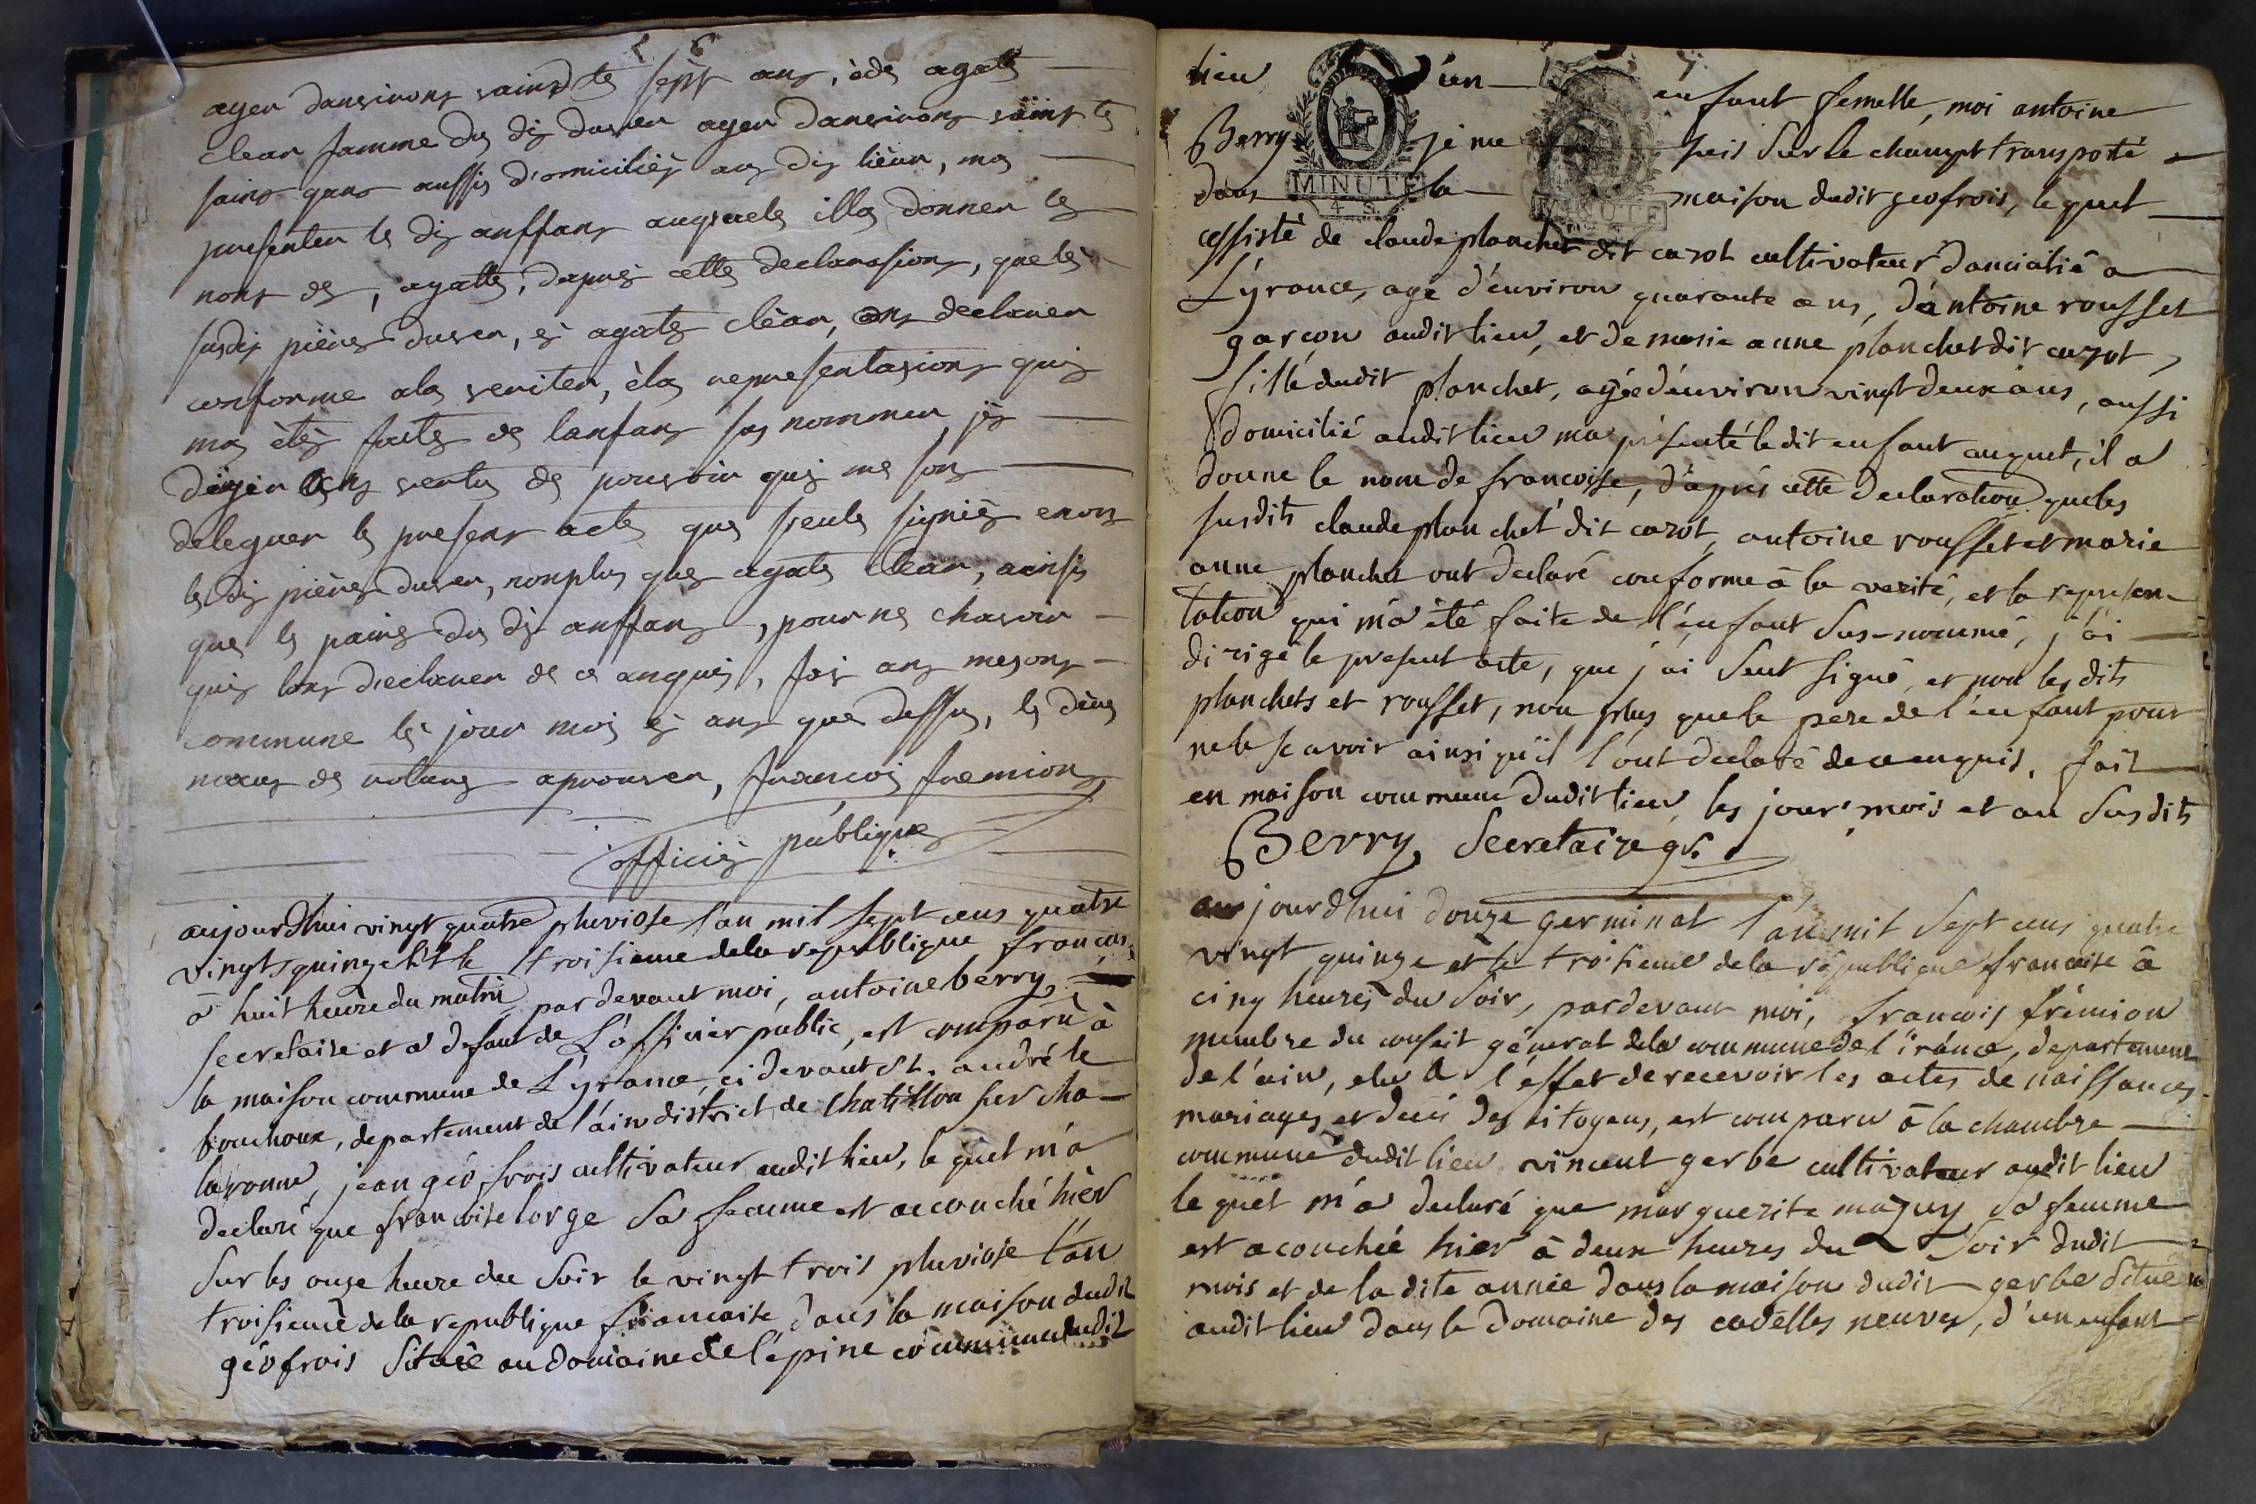 ayer danvirons vaindte sept ans, ède agate
clear famme du dis duver ayer danvirons vaints
saint quans aussis domiciliés au dis lièur, ma
presenter le dis anffans auqueele illa donner le
nons de, agatte, dapres cette declarasions, que les
susdis pière duver, é agate clèar, ons declarer
conforme ala veriter, èla representasions quis
ma étés faite de lanfans sus nommer jés
deliguer le presens acte que seule signiès enons
le dis pière duver, nonplus que agate clear, ainsis
que le paire du dis anffans, pour ne chavoir
quis lons declarer de ce anquis, fais ans mesons
commune les jour mois é ans que dessus, le deus
maus de rolure aprouver, francois fremions
officiés publique
aujourdhui vingt quatre pluviose l'an mil sept cens quatre
vingts quinze et le troisieme de la republique francois
a huit heure du matin par devant moi, antoine berry
secretaire et a defaut de L'officier public, est comparu à
la maison commune de L'yrance, ci devant St. andré le
bouchoux, departement de l'ain district de chatillon sur cha-
laronne, jean géofrois cultivateur audit lieu, le quel m'a
declaré que francoise lorge sa femme est acouché hièr
sur les onze heure du soir le vingt trois pluviose l'an
troisieme de la republique francaise dans la maison dudit
géofrois situeé au domaine de l'épine commune dudit
lieu d'un enfant femelle, moi antoine
Berry je me suis sur le champt transporté
dans la maison dudit geofrois, le quel
MINUTE
4 S.
MINUTE
assisté de claude planchet dit cazot cultivateur domicilié a
L'yrance, age d'environ quarante ans, d'antoine rousset
garçon audit lieu, et de marie anne planchet dit cazot,
fille dudit planchet, agée d'environ vingt deux ans, aussi
domicilié audit lieu ma présenté ledit enfant auquel, il a
donne le nom de francoise, d'après cette declaration que les
susdits claude planchet dit cazot, antoine rousset et marie
anne planchet ont declaré conforme à la verité, et la represen-
tation qui m'a été faite de l'enfant sus-nommé, j'ai
dirigé le present acte, que j'ai seul signé, et non les dits
planchets et rousset, non plus que le pere de l'enfant pour
ne le scavoir ainsi qu'il l'ont declaré de ce enquis, fait
en maison commune dudit lieu, les jour mois et an susdits
Berry Secretaire gr.
aujourdhui douze germinal l'an mil sept cens quatre
vingt quinze et le troisieme de la république francaise à
cinq heures du soir, pardevant moi, francois frémion
membre du conseil général de la commune de l'irance, departement
de l'ain, elu à l'effet de recevoir les actes de naissances
mariages et deces des citoyens, est comparu à la chambre
commune dudit lieu vincent gerbe cultivateur audit lieu
le quel m'a declaré que marguerite mazuy sa femme
est acouchée hier à deux heures du soir dudit
mois et de la dite année dans la maison dudit gerbe située
audit lieu dans le domaine des cadelles neuves, d'un enfant